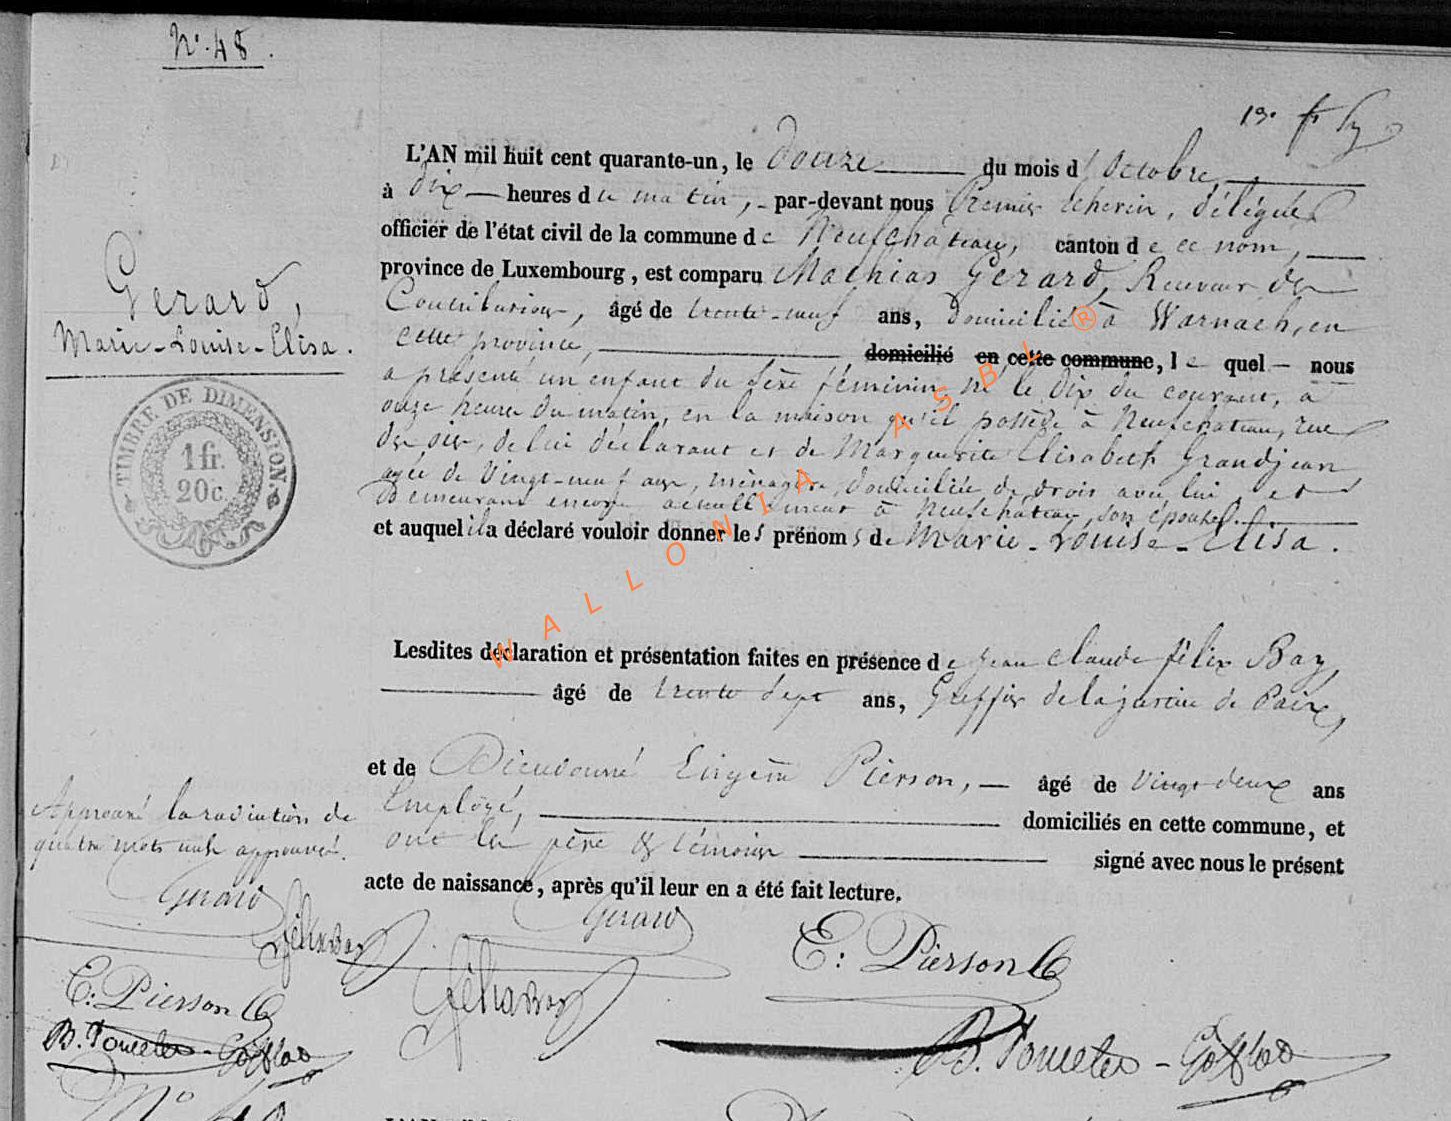 N° 48.
L'AN mil huit cent quarante-un, le Douze du mois d'Octobre
à Dix heures du matin, par-devant nous Premier Echevin, délégué
officier de l'état civil de la commune de Neufchâteau, canton de ce nom,
province de Luxembourg, est comparu Mathias Gerard, Receveur des
Contributions, âgé de trente-neuf ans, domicilié à Warnach, en
cette province, domicilié en cette commune, lequel nous
a présenté un enfant du sexe féminin né le Dix du courant, à
onze heures du matin, en la maison qu'il possède à Neufchateau, rue
de lui déclarant et de Marguerite Elisabeth Grandjean
agée de Vingt-neuf ans, ménagère, domiciliée de droit avec lui, et
Demeurant encore actuellement à Neufchâteau, son épouse.
et auquel il a déclaré vouloir donner les prénoms de Marie-Louise-Elisa.
Gerard,
Marie-Louise-Elisa.
TIMBRE DE DIMENSION.
1 fr.
20 c.
Lesdites déclaration et présentation faites en présence de Jean Claude félix Bay,
âgé de trente sept ans, Greffier de la justice de Paix,
et de Dieudonné Eugène Pierson, âgé de Vingt deux ans
Employé, domiciliés en cette commune, et
ont les père & témoins signé avec nous le présent
acte de naissance, après qu'il leur en a été fait lecture.
Approuvé la radiation de
quatre mots nuls approuvé.
Gerard
E: Pierson
Gerard
E: Pierson
WALLONIA ASBL ®